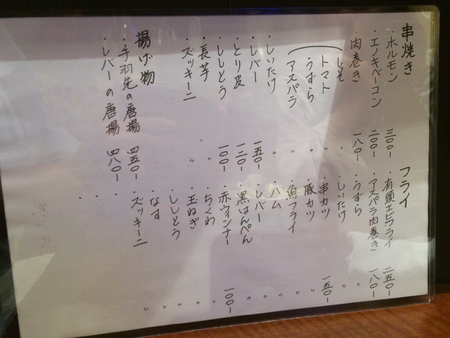 串焼き
・ホルモン 三〇〇-
・エノキベーコン 二〇〇-
・肉巻き 一八〇-
しそ
トマト
うずら
アスパラ
・しいたけ
・レバー 一五〇-
・とり皮 一二〇-
・ししとう 一〇〇-
・長芋 〃
・ズッキーニ 〃
揚げ物
・手羽先の唐揚 四五〇-
・レバーの唐揚 四八〇-
フライ
・有頭エビフライ 二五〇-
・アスパラ肉巻き 一八〇-
・うずら 〃
・しいたけ 〃
・串カツ 一五〇-
・豚カツ 〃
・魚フライ 〃
・ハム 〃
・レバー 〃
・黒はんぺん 〃
・赤ウィンナー 一〇〇-
・ちくわ 〃
・玉ねぎ 〃
・ししとう 〃
・なす 〃
・ズッキーニ 〃